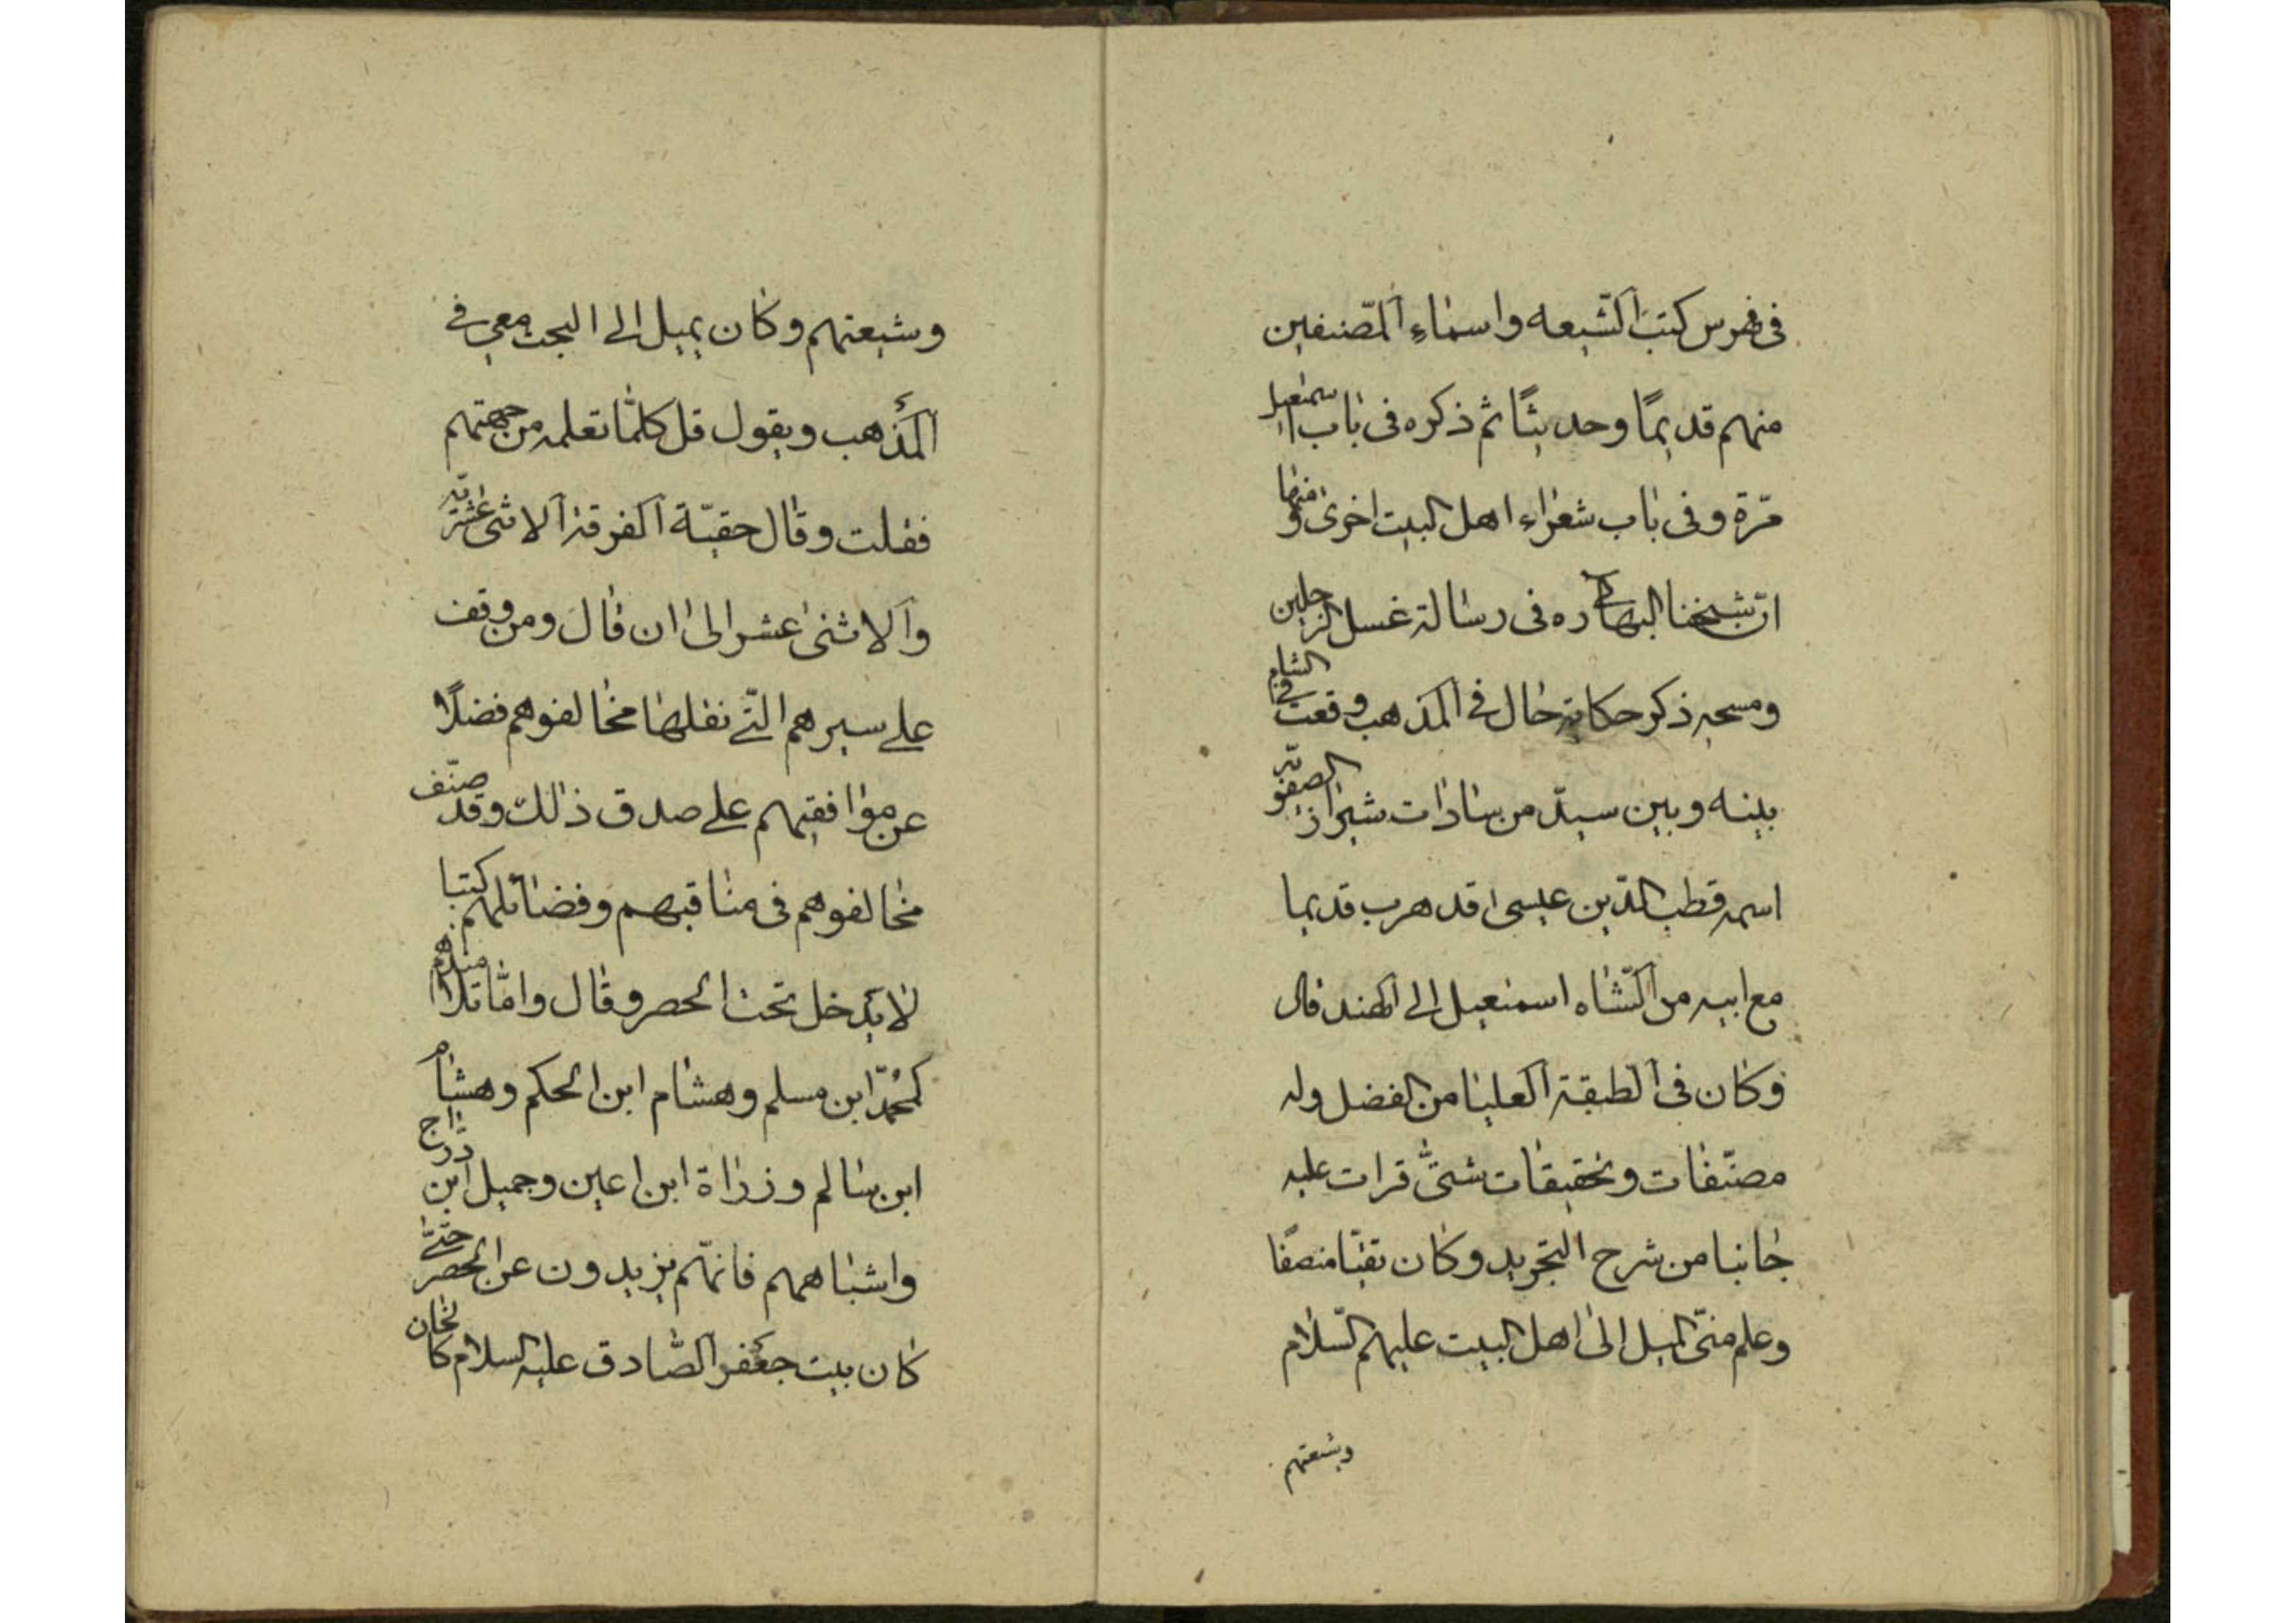 فى فهرس كتب الشّيعه واسماء المصّنفين
منهم قديمًا وحديثًا ثم ذكره فى باب اسمعيل
مرّة وفى باب شعراء اهل البيت اخرى ومنها
انّ شيخنا البهائى ره فى رسالة غسل الرجلين
ومسحه ذكر حكاية حال فى المذهب وقعت فى الشام
بينه وبين سيّد من سادات شيراز الصفويّه
اسمه قطب الدّين عيسى قد هرب قديما
مع ابيه من الشّاه اسمعيل الى الهند قال
وكان فى الطبقة العليا من الفضل وله
مصنّفات وتحقيقات شتىّ قرات عليه
جانبا من شرح التجريد وكان تقيّا منصفًا
وعلم منّى الميل الى اهل البيت عليهم السّلام
وشيعتهم
وشيعتهم وكان يميل الى البحث معى فى
المذهب ويقول قل كلمّا تعلمه من جهتهم
فقلت وقال حقيّة الفرقة الاثنى عشريّه
والاثنى عشر الى ان قال ومن وقف
على سيرهم التّى نقلها مخالفوهم فضلًا
عن موافقيهم على صدق ذالك وقد صنّف
مخالفوهم فى مناقبهم وفضائلهم كتبا
لا يدخل تحت الحصر وقال وامّا تلامذتهم
كمحمّد ابن مسلم وهشام ابن الحكم وهشام
ابن سالم وزراة ابن اعين وجميل ابن درّاج
واشباههم فانهّم يزيدون عن الحصر حتىّ
كان بيت جعفر الصّادق عليه السلام كالخان